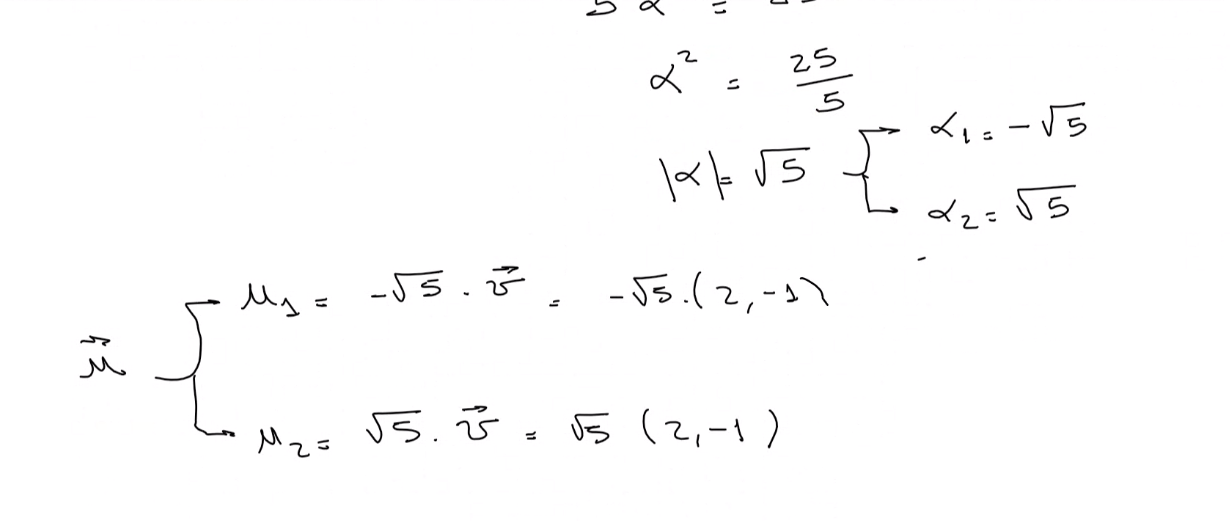 5 α =
α² = 25/5
|α| = √5 { α₁ = -√5
α₂ = √5
μ⃗ { μ₁ = -√5 . v⃗ = -√5.(2,-1)
μ₂ = √5. v⃗ = √5 (2,-1)